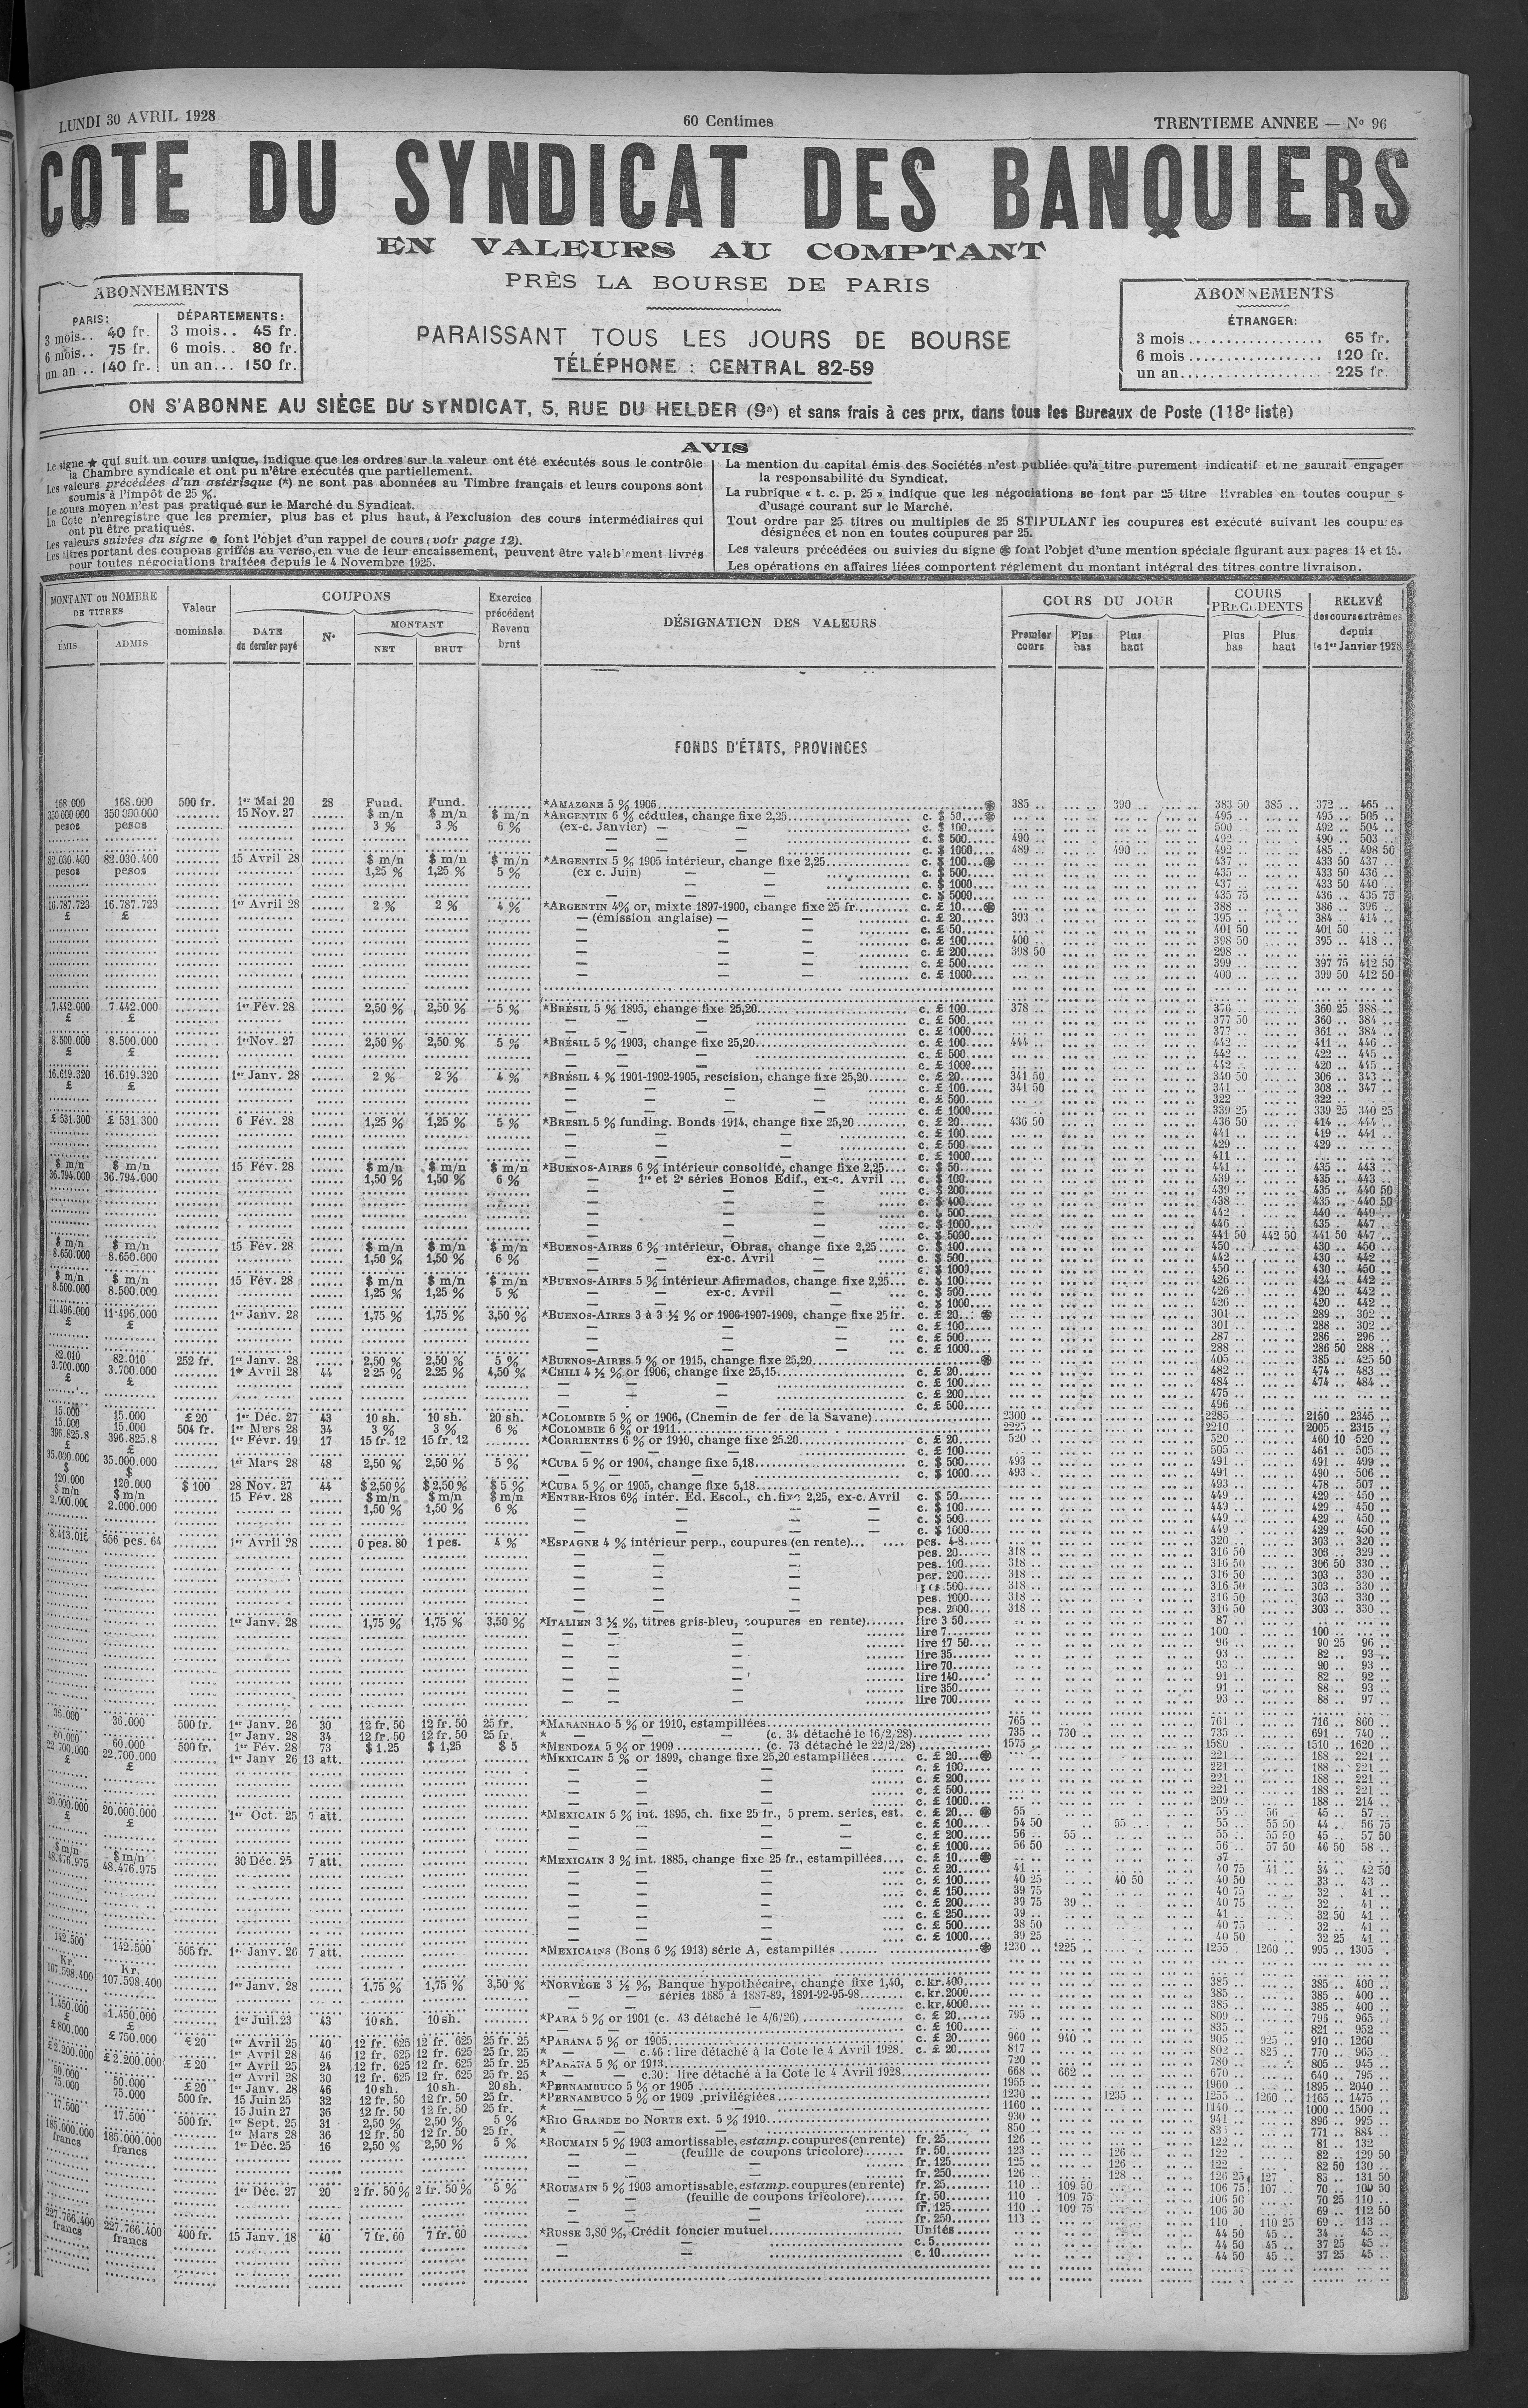 LUNDI 30 AVRIL 1928
60 Centimes
TRENTIEME ANNEE — No 96
COTE DU SYNDICAT DES BANQUIERS
EN VALEURS AU COMPTANT
PRÈS LA BOURSE DE PARIS
PARAISSANT TOUS LES JOURS DE BOURSE
TÉLÉPHONE : CENTRAL 82-59
ABONNEMENTS
PARIS:
3 mois.. 40 fr.
6 mois.. 75 fr.
un an .. 140 fr.
DÉPARTEMENTS:
3 mois.. 45 fr.
6 mois.. 80 fr.
un an... 150 fr.
ABONNEMENTS
ÉTRANGER:
3 mois .. 65 fr.
6 mois .. 120 fr.
un an.. 225 fr.
ON S'ABONNE AU SIÈGE DU SYNDICAT, 5, RUE DU HELDER (9e) et sans frais à ces prix, dans tous les Bureaux de Poste (118e liste)
AVIS
Le signe ★ qui suit un cours unique, indique que les ordres sur la valeur ont été exécutés sous le contrôle
la Chambre syndicale et ont pu n'être exécutés que partiellement.
Les valeurs précédées d'un astérisque (*) ne sont pas abonnées au Timbre français et leurs coupons sont
soumis à l'impôt de 25 %.
Le cours moyen n'est pas pratiqué sur le Marché du Syndicat.
La Cote n'enregistre que les premier, plus bas et plus haut, à l'exclusion des cours intermédiaires qui
ont pu être pratiqués.
Les valeurs suivies du signe ● font l'objet d'un rappel de cours (voir page 12).
Les titres portant des coupons griffés au verso, en vue de leur encaissement, peuvent être valablement livrés
pour toutes négociations traitées depuis le 4 Novembre 1925.
La mention du capital émis des Sociétés n'est publiée qu'à titre purement indicatif et ne saurait engager
la responsabilité du Syndicat.
La rubrique « t. c. p. 25 » indique que les négociations se font par 25 titre livrables en toutes coupur s
d'usage courant sur le Marché.
Tout ordre par 25 titres ou multiples de 25 STIPULANT les coupures est exécuté suivant les coupures
désignées et non en toutes coupures par 25.
Les valeurs précédées ou suivies du signe ⊛ font l'objet d'une mention spéciale figurant aux pages 14 et 15.
Les opérations en affaires liées comportent réglement du montant intégral des titres contre livraison.
MONTANT ou NOMBRE DE TITRES
ÉMIS
ADMIS
Valeur nominale
COUPONS
DATE du dernier payé
No
MONTANT
NET
BRUT
Exercice précédent Revenu brut
DÉSIGNATION DES VALEURS
COURS DU JOUR
Premier cours
Plus bas
Plus haut
COURS PRECEDENTS
Plus bas
Plus haut
RELEVÉ des cours extrêmes depuis le 1er Janvier 1928
FONDS D'ÉTATS, PROVINCES
168 000 168.000 500 fr. 1er Mai 20 28 Fund. Fund. *AMAZONE 5 % 1906 385 .. 390 .. 383 50 385 .. 372 .. 465 ..
350 000 000 350 000.000 15 Nov. 27 $ m/n $ m/n $ m/n *ARGENTIN 6 % cédules, change fixe 2,25 c. $ 50 495 .. 495 .. 505 ..
pesos pesos 3 % 3 % 6 % (ex-c. Janvier) — — c. $ 100 500 .. 492 .. 504 ..
c. $ 500 490 .. 492 .. 490 .. 503 ..
c. $ 1000 489 .. 490 .. 492 .. 485 .. 498 50
82.030.400 82.030.400 15 Avril 28 $ m/n $ m/n $ m/n *ARGENTIN 5 % 1905 intérieur, change fixe 2,25 c. $ 100 437 .. 433 50 437 ..
pesos pesos 1,25 % 1,25 % 5 % (ex c. Juin) — — c. $ 500 435 .. 433 50 436 ..
c. $ 1000 437 .. 433 50 440 ..
c. $ 5000 435 75 436 .. 435 75
16.787.723 16.787.723 1er Avril 28 2 % 2 % 4 % *ARGENTIN 4% or, mixte 1897-1900, change fixe 25 fr. c. £ 10 388 .. 386 .. 396 ..
£ £ — (émission anglaise) — — c. £ 20 393 .. 395 .. 384 .. 414 ..
c. £ 50 401 50 401 50
c. £ 100 400 .. 398 50 395 .. 418 ..
c. £ 200 398 50 298 ..
c. £ 500 399 .. 397 75 412 50
c. £ 1000 400 .. 399 50 412 50
7.442.000 7.442.000 1er Fév. 28 2,50 % 2,50 % 5 % *BRÉSIL 5 % 1895, change fixe 25,20 c. £ 100 378 .. 376 .. 360 25 388 ..
£ £ c. £ 500 377 50 360 .. 384 ..
c. £ 1000 377 .. 361 .. 384 ..
8.500.000 8.500.000 1er Nov. 27 2,50 % 2,50 % 5 % *BRÉSIL 5 % 1903, change fixe 25,20 c. £ 100 444 .. 442 .. 411 .. 446 ..
£ £ c. £ 500 442 .. 422 .. 445 ..
c. £ 1000 442 .. 420 .. 445 ..
16.619.320 16.619.320 1er Janv. 28 2 % 2 % 4 % *BRÉSIL 4 % 1901-1902-1905, rescision, change fixe 25,20 c. £ 20 341 50 340 50 306 .. 343 ..
£ £ c. £ 100 341 50 341 .. 308 .. 347 ..
c. £ 500 322 .. 322 ..
c. £ 1000 339 25 339 25 340 25
£ 531.300 £ 531.300 6 Fév. 28 1,25 % 1,25 % 5 % *BRESIL 5 % funding. Bonds 1914, change fixe 25,20 c. £ 20 436 50 436 50 414 .. 444 ..
c. £ 100 441 .. 419 .. 441 ..
c. £ 500 429 .. 429 ..
c. £ 1000 411 ..
$ m/n $ m/n 15 Fév. 28 $ m/n $ m/n $ m/n *BUENOS-AIRES 6 % intérieur consolidé, change fixe 2,25 c. $ 50 441 .. 435 .. 443 ..
36.794.000 36.794.000 1,50 % 1,50 % 6 % — 1re et 2e séries Bonos Edif., ex-c. Avril c. $ 100 439 .. 435 .. 443 ..
c. $ 200 439 .. 435 .. 440 50
c. $ 400 438 .. 435 .. 440 50
c. $ 500 442 .. 440 .. 449 ..
c. $ 1000 446 .. 435 .. 447 ..
c. $ 5000 441 50 442 50 441 50 447 ..
$ m/n $ m/n 15 Fév. 28 $ m/n $ m/n $ m/n *BUENOS-AIRES 6 % intérieur, Obras, change fixe 2,25 c. $ 100 450 .. 430 .. 450 ..
8.650.000 8.650.000 1,50 % 1,50 % 6 % — ex-c. Avril — c. $ 500 442 .. 430 .. 442 ..
c. $ 1000 450 .. 430 .. 450 ..
$ m/n $ m/n 15 Fév. 28 $ m/n $ m/n $ m/n *BUENOS-AIRES 5 % intérieur Afirmados, change fixe 2,25 c. $ 100 426 .. 424 .. 442 ..
8.500.000 8.500.000 1,25 % 1,25 % 5 % — ex-c. Avril — c. $ 500 426 .. 420 .. 442 ..
c. $ 1000 426 .. 420 .. 442 ..
11.496.000 11.496.000 1er Janv. 28 1,75 % 1,75 % 3,50 % *BUENOS-AIRES 3 à 3 ½ % or 1906-1907-1909, change fixe 25 fr. c. £ 20 301 .. 289 .. 302 ..
£ £ c. £ 100 301 .. 288 .. 302 ..
c. £ 500 287 .. 286 .. 296 ..
c. £ 1000 288 .. 286 50 288 ..
82.010 82.010 252 fr. 1er Janv. 28 2,50 % 2,50 % 5 % *BUENOS-AIRES 5 % or 1915, change fixe 25,20 405 .. 385 .. 425 50
3.700.000 3.700.000 1er Avril 28 44 2 25 % 2.25 % 4,50 % *CHILI 4 ½ % or 1906, change fixe 25,15 c. £ 20 482 .. 474 .. 483 ..
£ £ c. £ 100 484 .. 474 .. 484 ..
c. £ 200 475 ..
c. £ 500 496 ..
15.000 15.000 £ 20 1er Déc. 27 43 10 sh. 10 sh. 20 sh. *COLOMBIE 5 % or 1906, (Chemin de fer de la Savane) 2300 .. 2285 .. 2150 .. 2345 ..
15.000 15.000 504 fr. 1er Mars 28 34 3 % 3 % 6 % *COLOMBIE 6 % or 1911 2225 .. 2210 .. 2005 .. 2315 ..
396.825.8 396.825.8 1er Févr. 19 17 15 fr. 12 15 fr. 12 *CORRIENTES 6 % or 1910, change fixe 25.20 c. £ 20 520 .. 520 .. 460 10 520 ..
£ £ c. £ 100 505 .. 461 .. 505 ..
35.000.000 35.000.000 1er Mars 28 48 2,50 % 2,50 % 5 % *CUBA 5 % or 1904, change fixe 5,18 c. $ 500 493 .. 491 .. 491 .. 499 ..
$ $ c. $ 1000 493 .. 491 .. 490 .. 506 ..
120.000 120.000 $ 100 28 Nov. 27 44 $ 2,50% $ 2,50% $ 5 % *CUBA 5 % or 1905, change fixe 5,18 493 .. 478 .. 507 ..
$ m/n $ m/n 15 Fév. 28 $ m/n $ m/n $ m/n *ENTRE-RIOS 6% intér. Ed. Escol., ch. fixe 2,25, ex-c. Avril c. $ 50 449 .. 429 .. 450 ..
2.000.000 2.000.000 1,50 % 1,50 % 6 % c. $ 100 449 .. 429 .. 450 ..
c. $ 500 449 .. 429 .. 450 ..
c. $ 1000 449 .. 429 .. 450 ..
556 pes. 64 1er Avril 28 0 pes. 80 1 pes. 4 % *ESPAGNE 4 % intérieur perp., coupures (en rente) pes. 4-8 320 .. 303 .. 320 ..
pes. 20 318 .. 316 50 303 .. 329 ..
pes. 100 318 .. 316 50 306 50 330 ..
per. 200 318 .. 316 50 303 .. 330 ..
pes. 500 318 .. 316 50 303 .. 330 ..
pes. 1000 318 .. 316 50 303 .. 330 ..
pes. 2000 318 .. 316 50 303 .. 330 ..
1er Janv. 28 1,75 % 1,75 % 3,50 % *ITALIEN 3 ½ %, titres gris-bleu, coupures en rente) lire 3 50 87 ..
lire 7 100 .. 100 ..
lire 17 50 96 .. 90 25 96 ..
lire 35 93 .. 82 .. 93 ..
lire 70 93 .. 90 .. 93 ..
lire 140 91 .. 82 .. 92 ..
lire 350 91 .. 88 .. 93 ..
lire 700 93 .. 88 .. 97 ..
36.000 36.000 500 fr. 1er Janv. 26 30 12 fr. 50 12 fr. 50 25 fr. *MARANHAO 5 % or 1910, estampillées 765 .. 761 .. 716 .. 860 ..
1er Janv. 28 34 12 fr. 50 12 fr. 50 25 fr. * — — (c. 34 détaché le 16/2/28) 735 .. 730 .. 735 .. 691 .. 740 ..
60.000 60.000 500 fr. 1er Fév. 28 73 $ 1.25 $ 1,25 $ 5 *MENDOZA 5 % or 1909 (c. 73 détaché le 22/2/28) 1575 .. 1580 .. 1510 .. 1620 ..
22 700.000 22.700.000 1er Janv 26 13 att. *MEXICAIN 5 % or 1899, change fixe 25,20 estampillées c. £ 20 221 .. 188 .. 221 ..
£ £ c. £ 100 221 .. 188 .. 221 ..
c. £ 200 221 .. 188 .. 221 ..
c. £ 500 221 .. 188 .. 221 ..
c. £ 1000 209 .. 188 .. 214 ..
20.000.000 20.000.000 1er Oct. 25 7 att. *MEXICAIN 5 % int. 1895, ch. fixe 25 fr., 5 prem. series, est. c. £ 20 55 .. 55 .. 56 .. 45 .. 57 ..
£ £ c. £ 100 54 50 55 .. 55 .. 55 50 44 .. 56 75
c. £ 200 56 .. 55 .. 55 .. 55 50 45 .. 57 50
c. £ 1000 56 50 56 .. 57 50 46 50 58 ..
$ m/n $ m/n 30 Déc. 25 7 att. *MEXICAIN 3 % int. 1885, change fixe 25 fr., estampillées c. £ 10 37 ..
48.476.975 48.476.975 c. £ 20 41 .. 40 75 41 .. 34 .. 42 50
c. £ 100 40 25 40 50 40 50 33 .. 43 ..
c. £ 150 39 75 40 75 32 .. 41 ..
c. £ 200 39 75 39 .. 40 75 32 .. 41 ..
c. £ 250 39 .. 41 .. 32 50 41 ..
c. £ 500 38 50 40 75 32 .. 41 ..
c. £ 1000 39 25 40 50 32 25 41 ..
142.500 142.500 505 fr. 1er Janv. 26 7 att. *MEXICAINS (Bons 6 % 1913) série A, estampillés 1230 .. 1225 .. 1255 .. 1260 .. 995 .. 1305 ..
Kr. Kr.
107.598.400 107.598.400 1er Janv. 28 1,75 % 1,75 % 3,50 % *NORVÈGE 3 ½ %, Banque hypothécaire, change fixe 1,40, c. kr. 400 385 .. 385 .. 400 ..
— séries 1885 à 1887-89, 1891-92-95-98 c. kr. 2000 385 .. 385 .. 400 ..
c. kr. 4000 385 .. 385 .. 400 ..
1.450.000 1.450.000 1er Juil. 23 43 10 sh. 10 sh. *PARA 5 % or 1901 (c. 43 détaché le 4/6/26) c. £ 20 795 .. 809 .. 796 .. 965 ..
£ £ c. £ 100 835 .. 821 .. 952
£ 800.000 £ 750.000 £ 20 1er Avril 25 40 12 fr. 625 12 fr. 625 25 fr. 25 *PARANA 5 % or 1905 c. £ 20 960 .. 940 .. 905 .. 925 .. 910 .. 1260
1er Avril 28 46 12 fr. 625 12 fr. 625 25 fr. 25 * — — c. 46 : lire détaché à la Cote le 4 Avril 1928. c. £ 20 817 .. 802 .. 825 .. 770 .. 965 ..
£ 2.200.000 £ 2.200.000 £ 20 1er Avril 25 24 12 fr. 625 12 fr. 625 25 fr. 25 *PARANA 5 % or 1913 720 .. 780 .. 805 .. 945 ..
1er Avril 28 30 12 fr. 625 12 fr. 625 25 fr. 25 * — c.30: lire détaché à la Cote le 4 Avril 1928 668 .. 662 .. 670 .. 640 .. 795 ..
50.000 50.000 £ 20 1er Janv. 28 46 10 sh. 10 sh. 20 sh. *PERNAMBUCO 5 % or 1905 1955 .. 1960 .. 1895 .. 2040 ..
75.000 75.000 500 fr. 15 Juin 25 32 12 fr. 50 12 fr. 50 25 fr. *PERNAMBUCO 5 % or 1909 privilégiées 1230 .. 1235 .. 1255 .. 1260 .. 1165 .. 1475 ..
15 Juin 27 36 12 fr. 50 12 fr. 50 25 fr. * — — 1160 .. 1140 .. 1000 .. 1500 ..
17.500 17.500 500 fr. 1er Sept. 25 31 2,50 % 2,50 % 5 % *RIO GRANDE DO NORTE ext. 5 % 1910 930 .. 941 .. 896 .. 995 ..
1er Mars 28 36 12 fr. 50 12 fr. 50 25 fr. * — — 850 .. 771 .. 884 ..
185.000.000 185.000.000 1er Déc. 25 16 2,50 % 2,50 % 5 % *ROUMAIN 5 % 1903 amortissable, estamp. coupures (en rente) fr. 25 126 .. 122 .. 81 .. 132
francs francs — (feuille de coupons tricolore) fr. 50 123 .. 126 .. 122 .. 82 .. 129 50
fr. 125 125 .. 126 .. 122 .. 82 50 130 ..
fr. 250 126 .. 128 .. 126 25 127 .. 83 .. 131 50
1er Déc. 27 20 2 fr. 50 % 2 fr. 50 % 5 % *ROUMAIN 5 % 1903 amortissable, estamp. coupures (en rente) fr. 25 110 .. 109 50 106 75 107 .. 70 .. 109 50
— (feuille de coupons tricolore) fr. 50 110 .. 109 75 106 50 70 25 110 ..
fr. 125 110 .. 109 75 106 50 69 .. 112 50
fr. 250 113 .. 110 .. 110 25 69 .. 113 ..
227.766.400 227.766.400 400 fr. 15 Janv. 18 40 7 fr. 60 7 fr. 60 *RUSSE 3,80 %, Crédit foncier mutuel Unités 44 50 45 .. 34 .. 45 ..
francs francs c. 5 44 50 45 .. 37 25 45 ..
c. 10 44 50 45 .. 37 25 45 ..